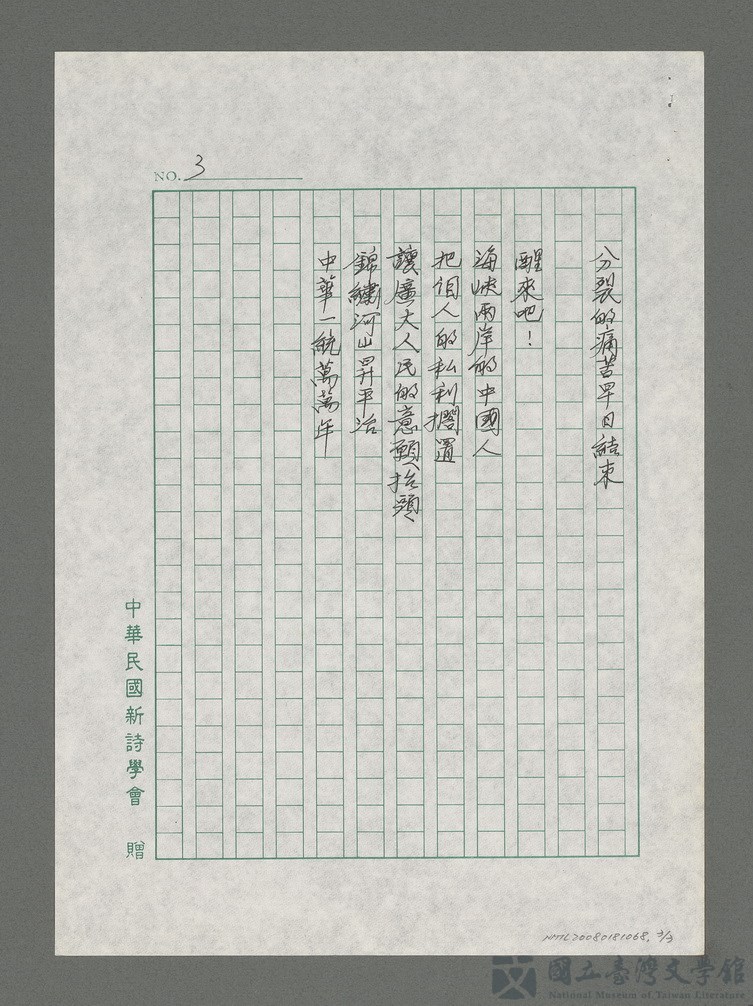 NO. 3
分裂的痛苦早日結束
醒來吧！
海峽兩岸的中國人
把個人的私利擱置
讓廣大人民的意願抬頭
錦繡河山昇平治
中華一統萬萬年
中華民國新詩學會 贈
NMTL20080181068, 3/3
國立臺灣文學館
National Museum of Taiwan Literature